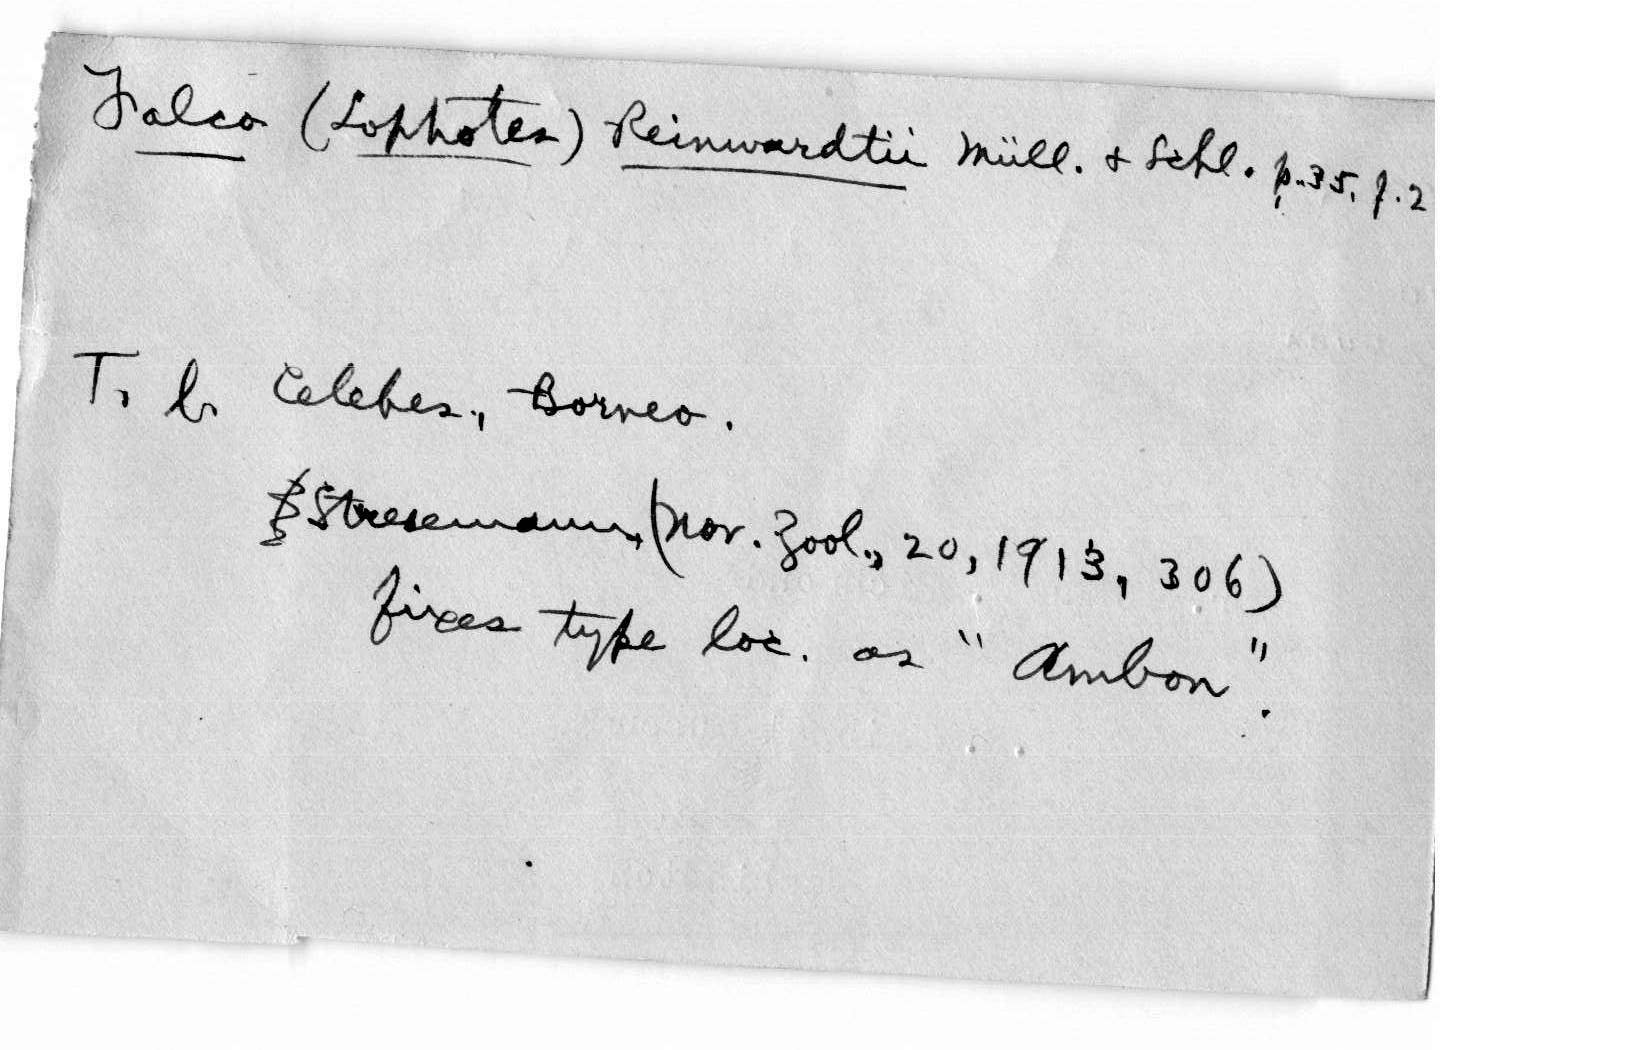 Falco (Lophotes) Reinwardtii Müll. & Schl. p. 35, f. 2
T. l. Celebes, Borneo.
Stresemann, (Nov. Zool., 20, 1913, 306)
fixes type loc. as "Ambon".